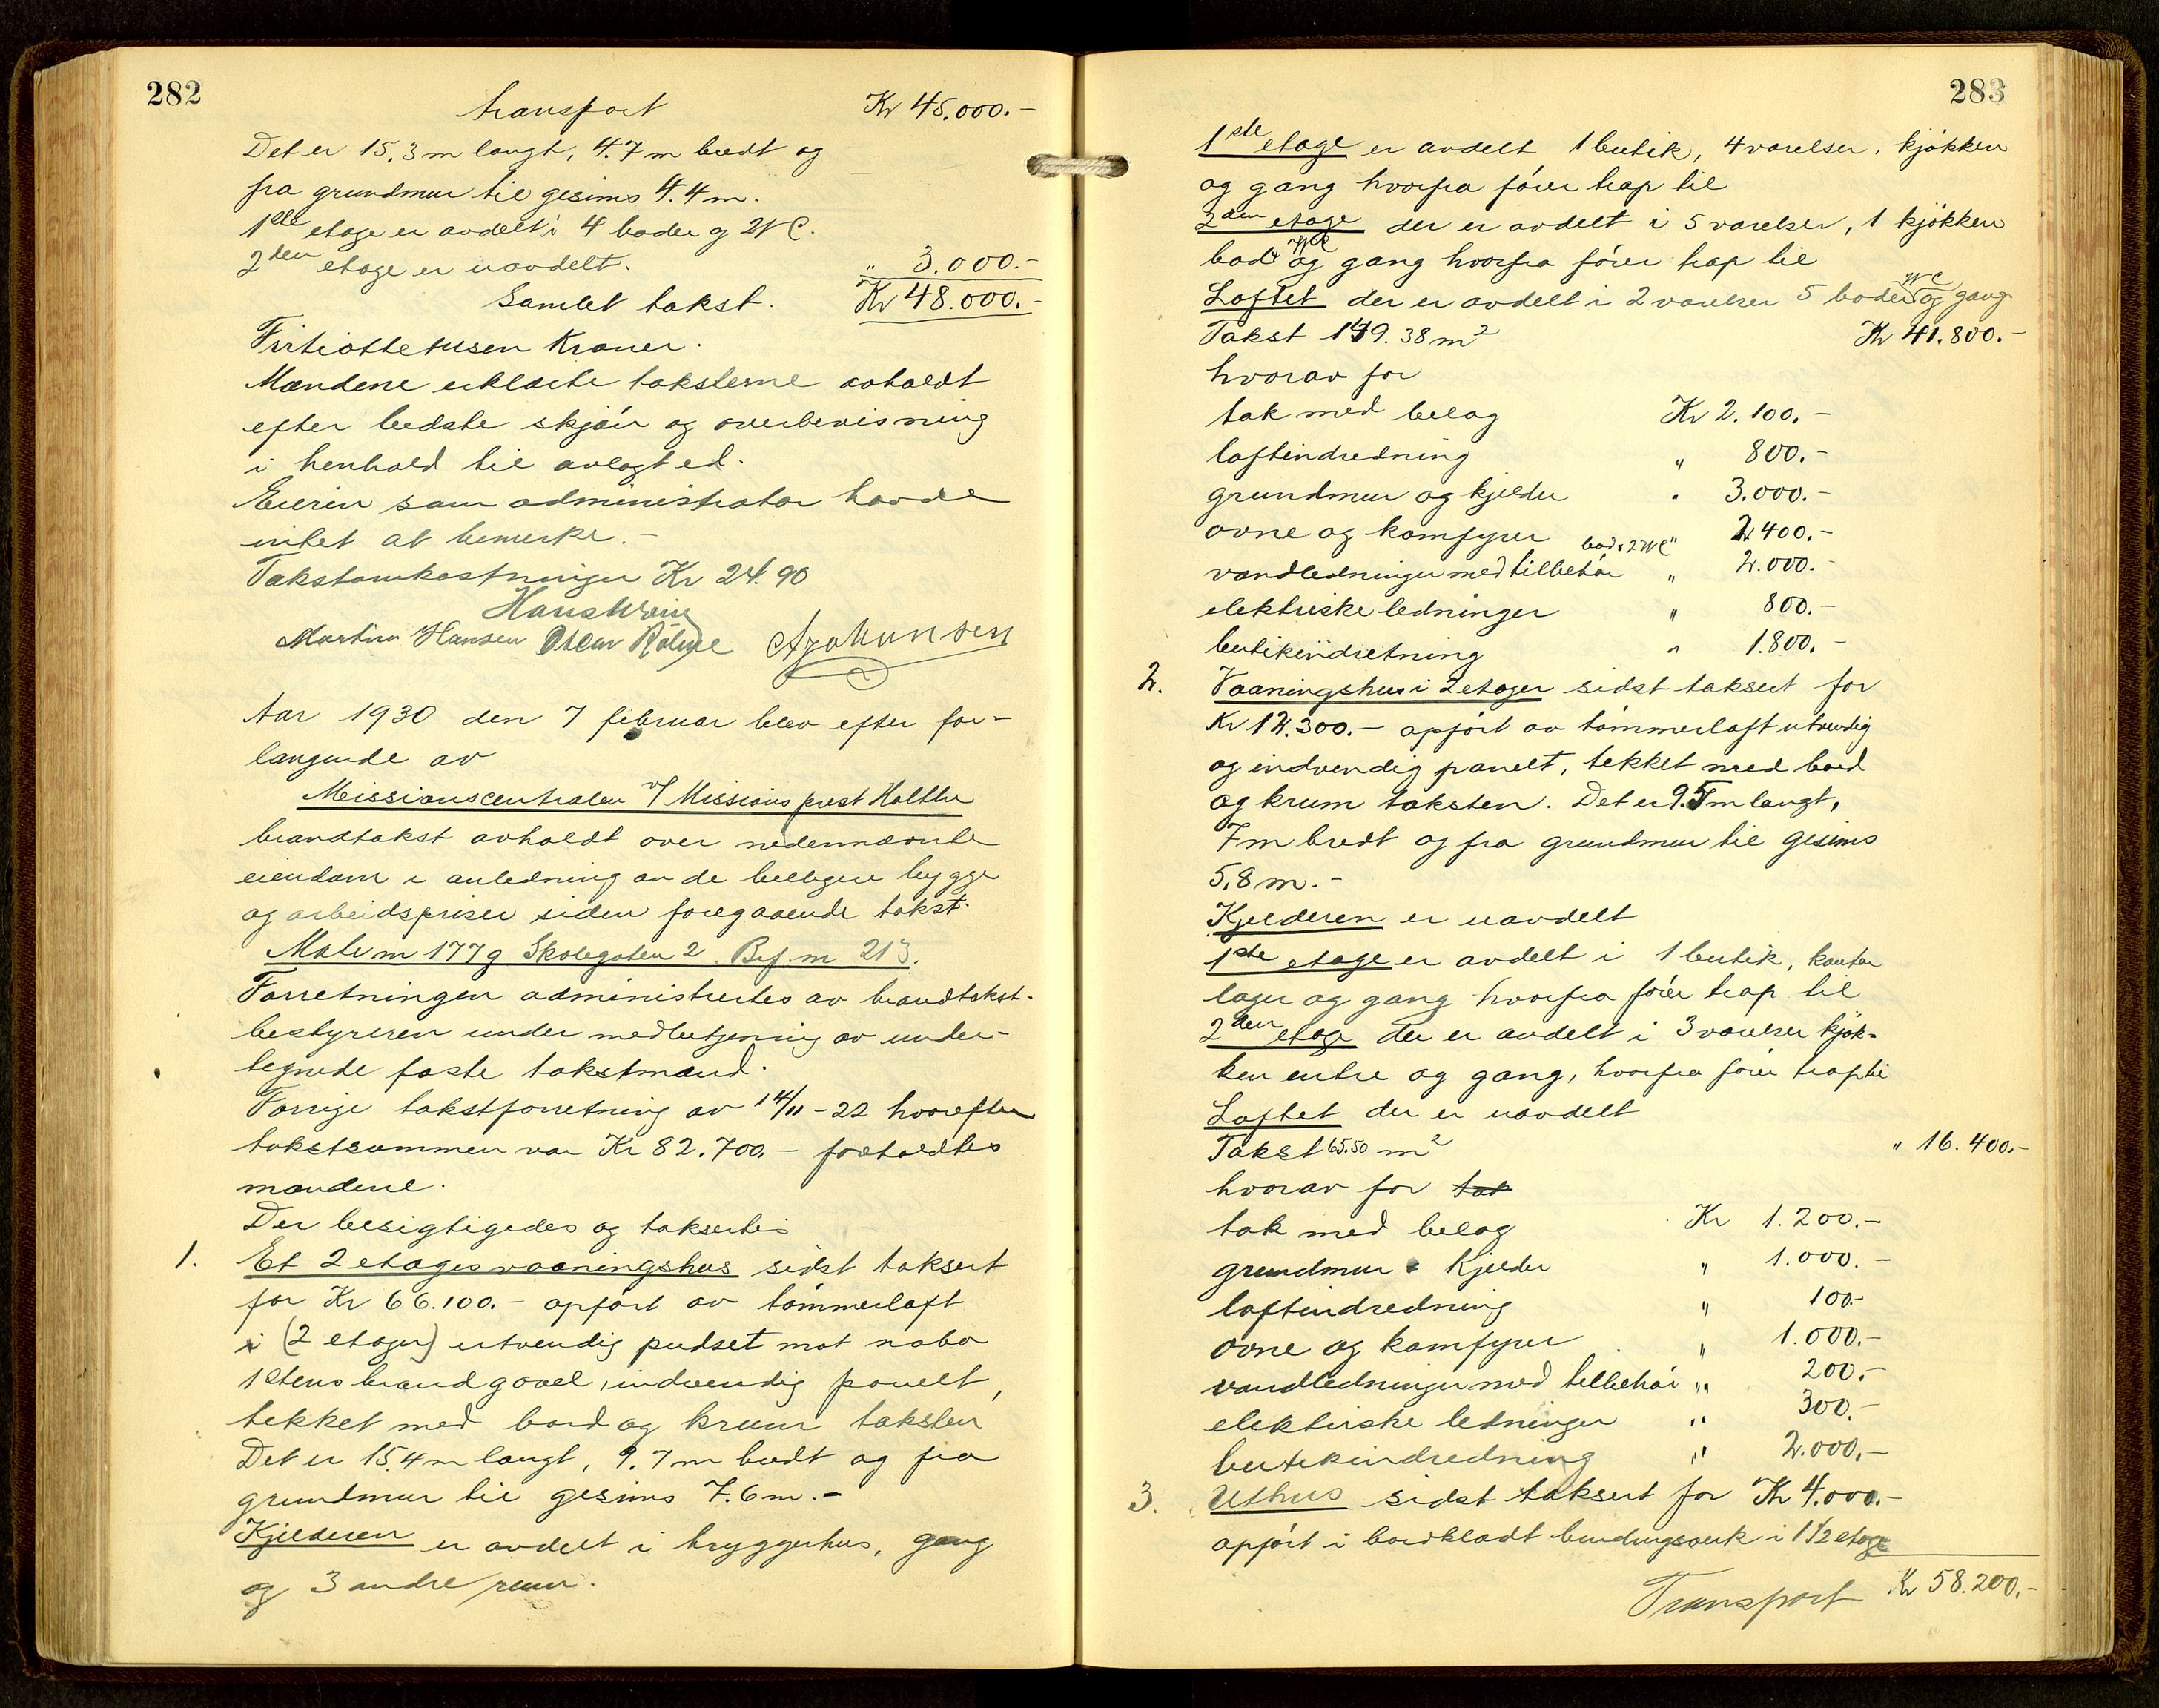 282
transport Kr 45.000.-
Det er 15,3 m langt, 4.7 m bredt og
fra grundmur til gesims 4.4 m.
1ste etage er avdelt i 4 boder og 2 WC.
2den etage er uavdelt. " 3.000.-
Samlet takst. Kr 48.000.-
Firtiottetusen Kroner.
Mændene erklærte taksterne avholdt
efter bedste skjøn og overbevisning
i henhold til avlagt ed.
Eieren som administrator havde
intet at bemerke.-
Takstomkostninger Kr 24.90
Martin Hansen Oscar A Johansen
Aar 1930 den 7 februar blev efter for-
langende av
Missionscentralen v/ Missionsprest Holthe
brandtakst avholdt over nedennævnte
eiendom i anledning av de billigere bygge
og arbeidspriser siden foregaaende takst.
Matr nr 177g Skolegaten 2. Brf. nr 213.
Forretningen administrertes av brandtakst-
bestyreren under medbetjening av under-
tegnede faste takstmænd.
Forrige takstforretning av 14/11-22 hvorefter
takstsummen var Kr 82.700.- foreholdtes
mændene.
Der besigtigedes og taksertes
1. Et 2 etages vaaningshus sidst taksert
for Kr 66.100.- opført av tømmerlaft
i (2 etager) utvendig pudset mot nabo
1 stens brandgavl, indvendig panelt,
tekket med bord og krum taksten
Det er 15.4 m langt, 9.7 m bredt og fra
grundmur til gesims 7.6 m.-
Kjelderen er avdelt i bryggerhus, gang
og 3 andre rum.
283
1ste etage er avdelt 1 butik, 4 værelser, kjøkken
og gang hvorfra fører trap til
2den etage der er avdelt i 5 værelser, 1 kjøkken
bad WC og gang hvorfra fører trap til
Loftet der er avdelt i 2 værelser 5 boder WC og gang.
Takst 149.38 m2 Kr 41.800.-
hvorav for
tak med belæg Kr 2.100.-
loftindredning " 800.-
grundmur og kjelder " 3.000.-
ovne og komfyrer " 2400.-
vandledninger med tilbehør bad + 2 WC " 2.000.-
elektriske ledninger " 800.-
butikindretning " 1.800.-
2. Vaaningshus i 2 etager sidst taksert for
Kr 12.300.- opført av tømmerlaft utvendig
og indvendig panelt, tekket med bord
og krum taksten. Det er 9.5 m langt,
7 m bredt og fra grundmur til gesims
5,8 m.-
Kjelderen er uavdelt
1ste etage er avdelt i 1 butik, kontor
lager og gang hvorfra fører trap til
2den etage der er avdelt i 3 værelser kjøk-
ken entre og gang, hvorfra fører trap til
Loftet der er uavdelt
Takst 65.50 m2 " 16.400.-
hvorav for tak
tak med belæg Kr 1.200.-
grundmur + Kjelder " 1.000.-
loftindredning " 100.-
ovne og komfyrer " 1.000.-
vandledninger med tilbehør " 200.-
elektriske ledninger " 300.-
butikindredning " 2.000.-
3. Uthus sidst taksert for Kr 4.000.-
opført i bordklædt bindingsverk i 1 1/2 etage
Transport Kr 58.200.-